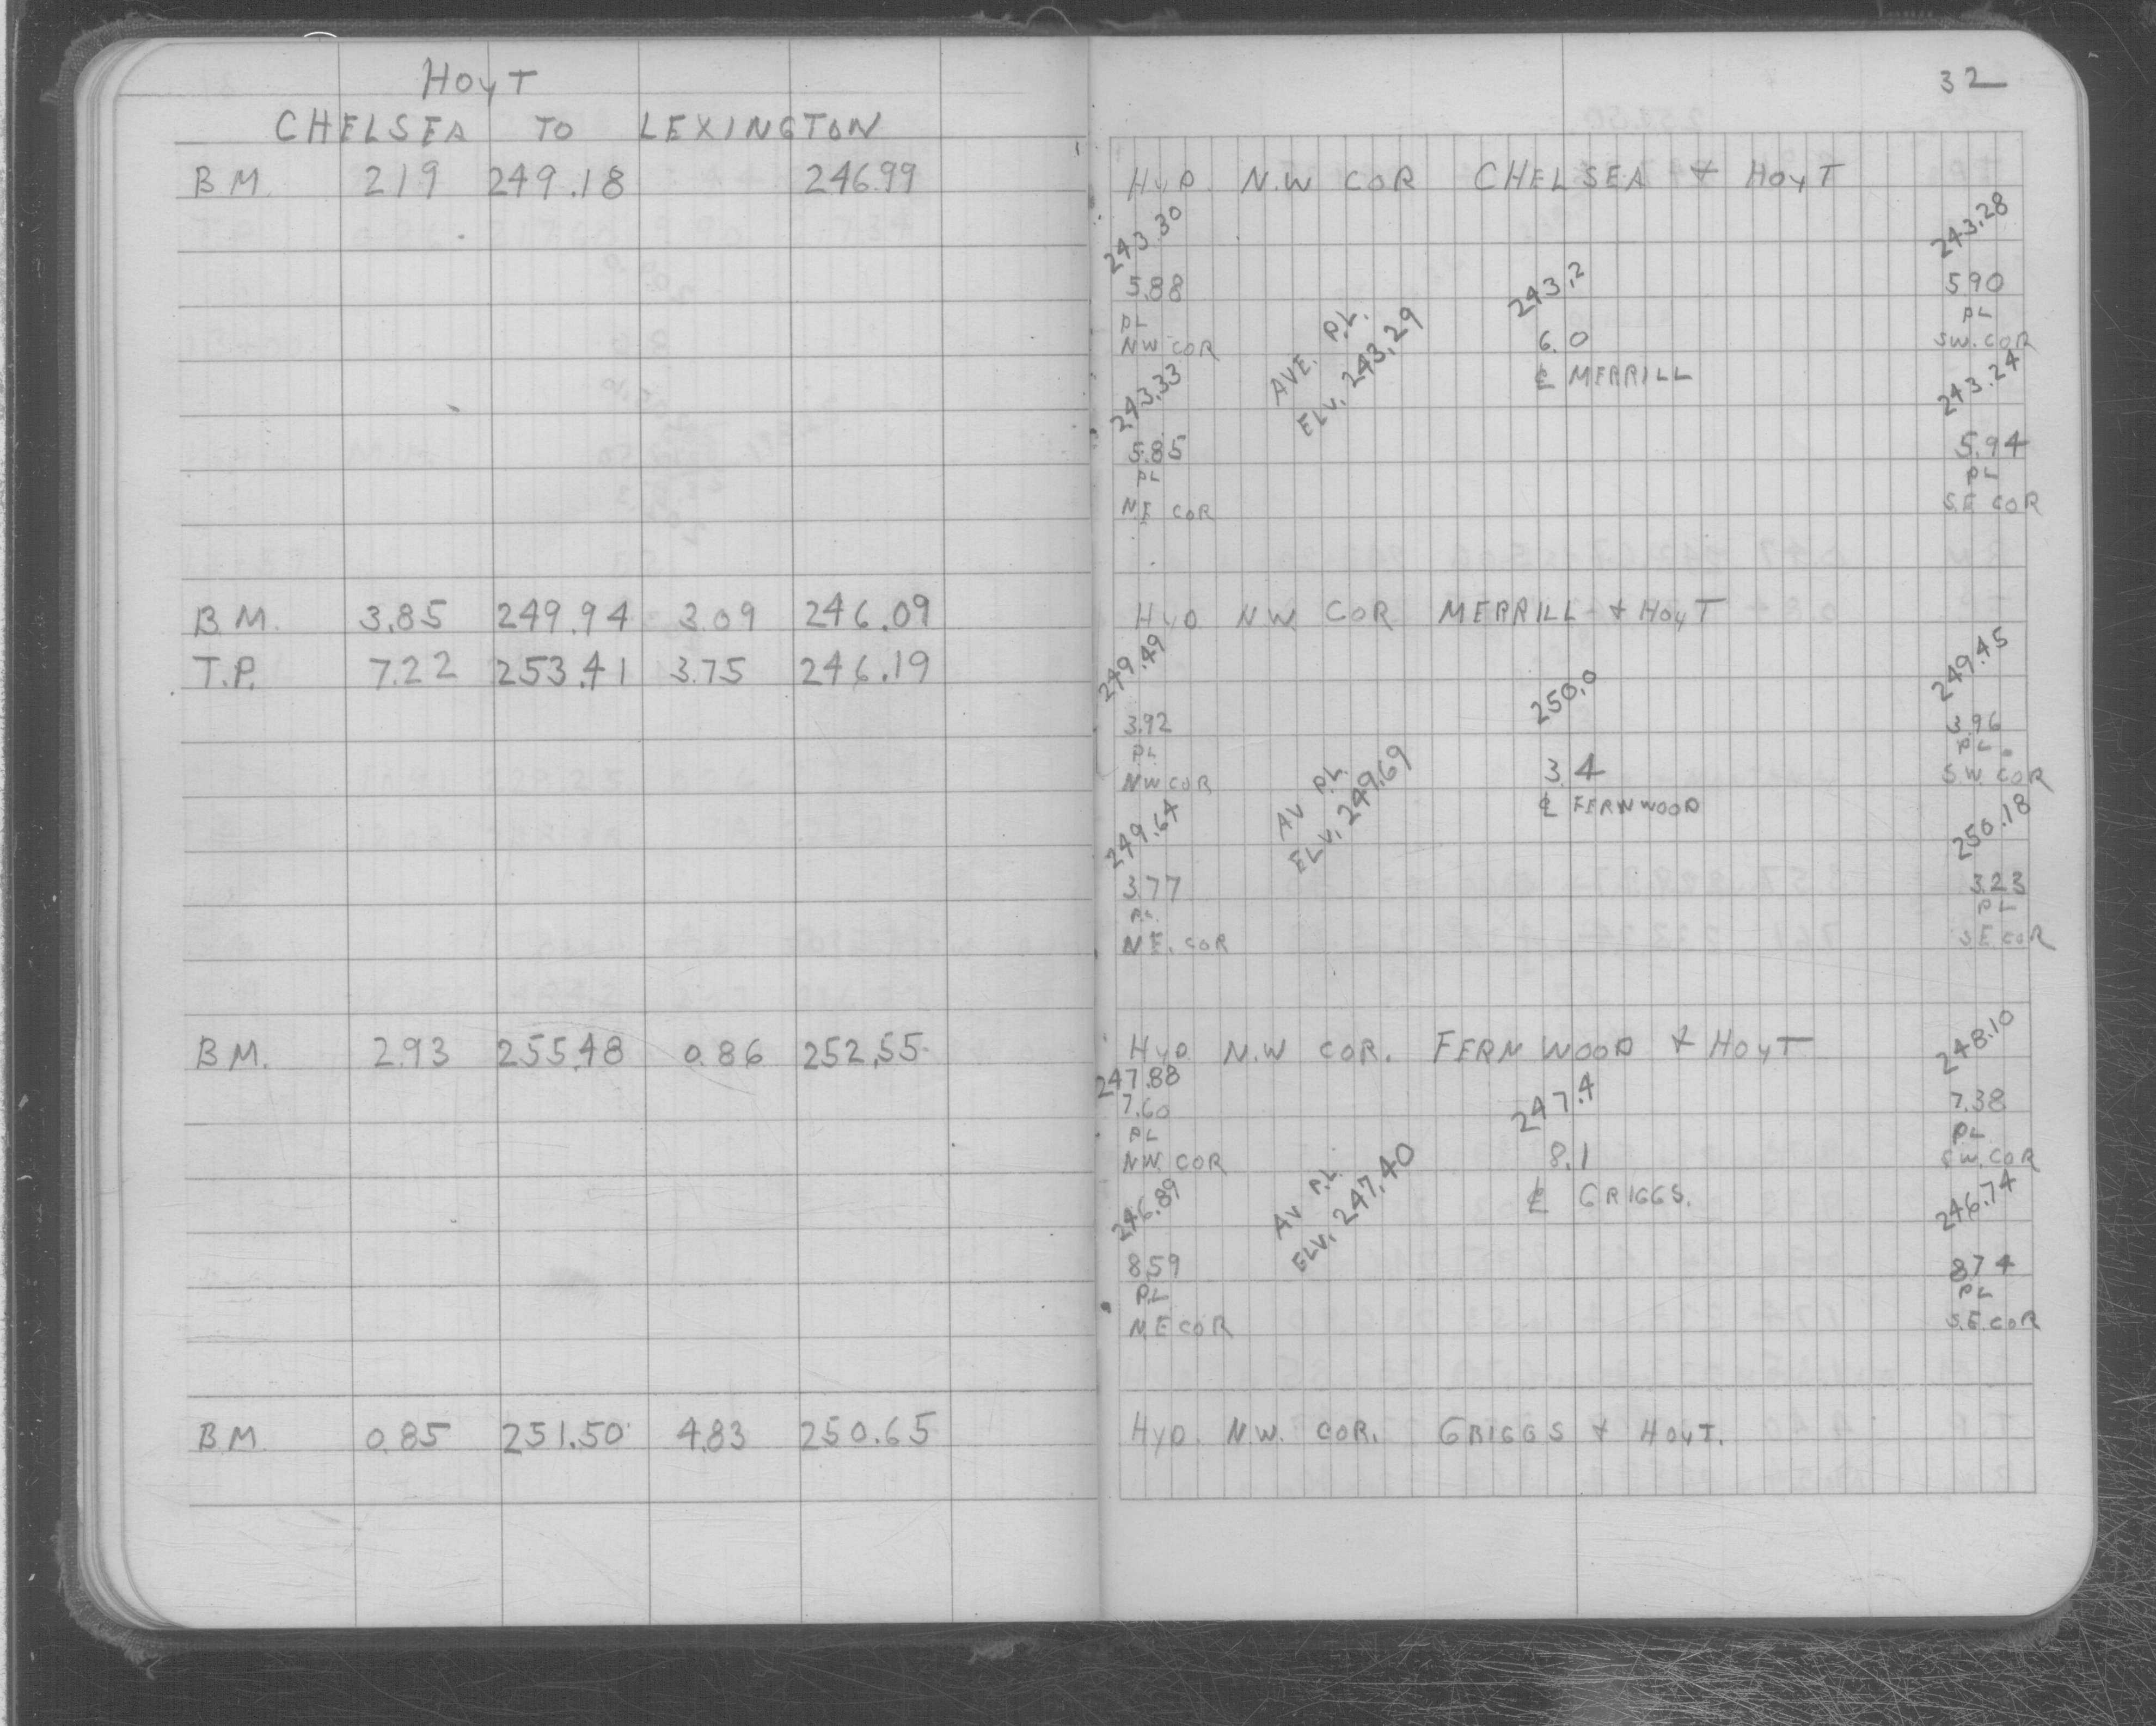 HOYT
CHELSEA TO LEXINGTON
B.M. 219 249.18 246.99
B.M. 3.85 249.94 3.09 246.09
T.P. 7.22 253.41 3.75 246.19
B.M. 2.93 255.48 0.86 252.55
B.M. 0.85 251.50 4.83 250.65
32
HYD. N.W COR CHELSEA & HOYT
243.30 243.28
5.88 243.2 590
PL AVE. P.L. 6.0 PL
NW COR ELV. 243.29 ℄ MERRILL SW. COR
243.33 243.24
5.85 5.94
PL PL
NE COR S.E COR
HYD. NW COR MERRILL & HOYT
249.49 250.0 249.45
3.92 3.96
PL. AV P.L. 3.4 PL.
NW COR ELV. 249.69 ℄ FERNWOOD S.W. COR
249.64 250.18
3.77 3.23
PL. PL
NE. COR S.E COR
HYD. N.W COR. FERNWOOD & HOYT
247.88 247.4 248.10
7.60 7.38
PL 8.1 PL
NW. COR AV P.L. ℄ GRIGGS. S.W. COR
246.89 ELV. 247.40 246.74
8.59 874
P.L PL
N.E COR S.E. COR
HYD. N.W. COR. GRIGGS & HOYT.